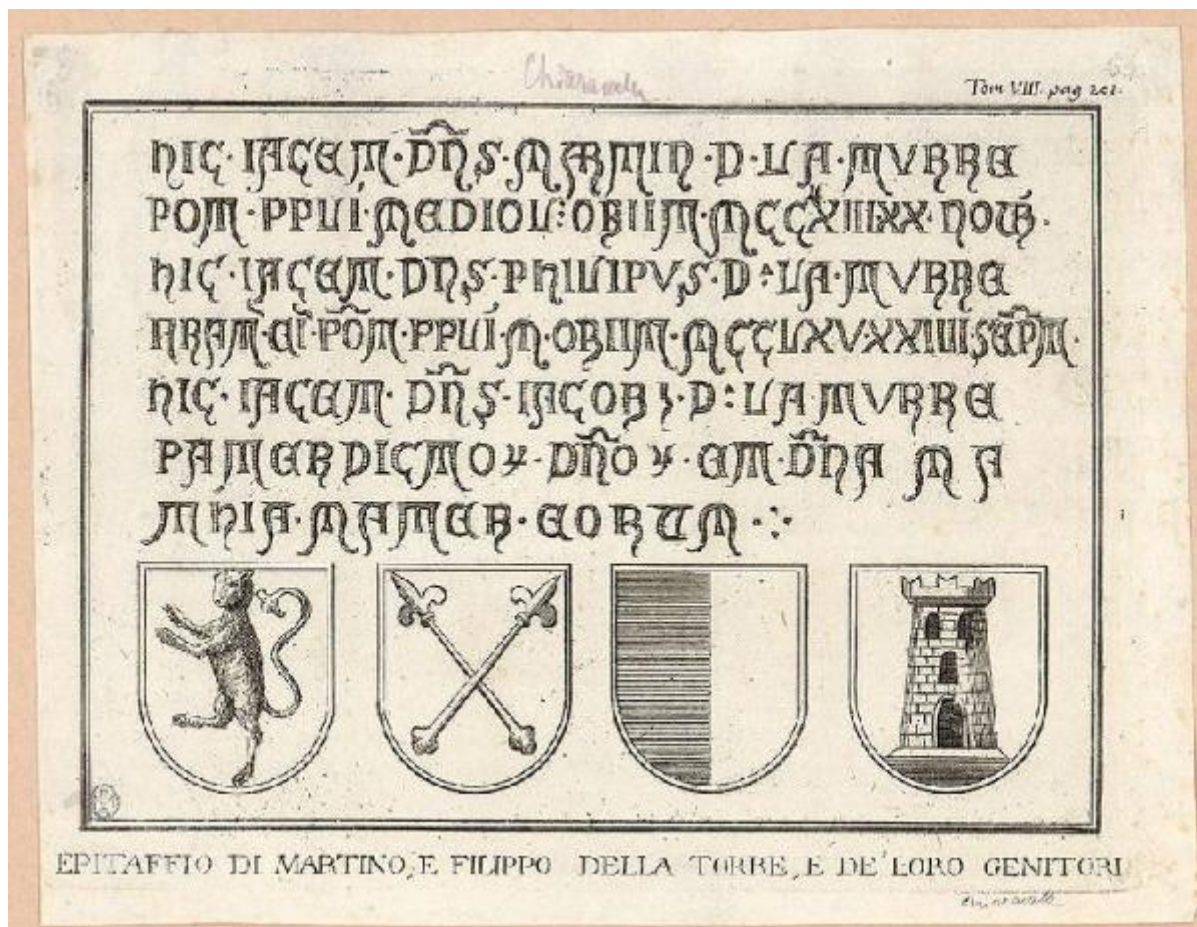 Tom VIII. pag 201.
HIC · IACET · DÑS · MARTIN · D · LA · TVRRE
POT · PPLI · MEDIOL : OBIIT · MCC
HIC · IACET · DNS · PHILIPVS · D : LA · TVRRE
OBIIT · MCCLXV · XXIIII
HIC · IACET · DÑS · IACOB · D : LA · TVRRE
PATER DICTO DÑO ET · DÑA MA
THIA · MATER · EORUM
EPITAFFIO DI MARTINO, E FILIPPO DELLA TORRE, E DE' LORO GENITORI